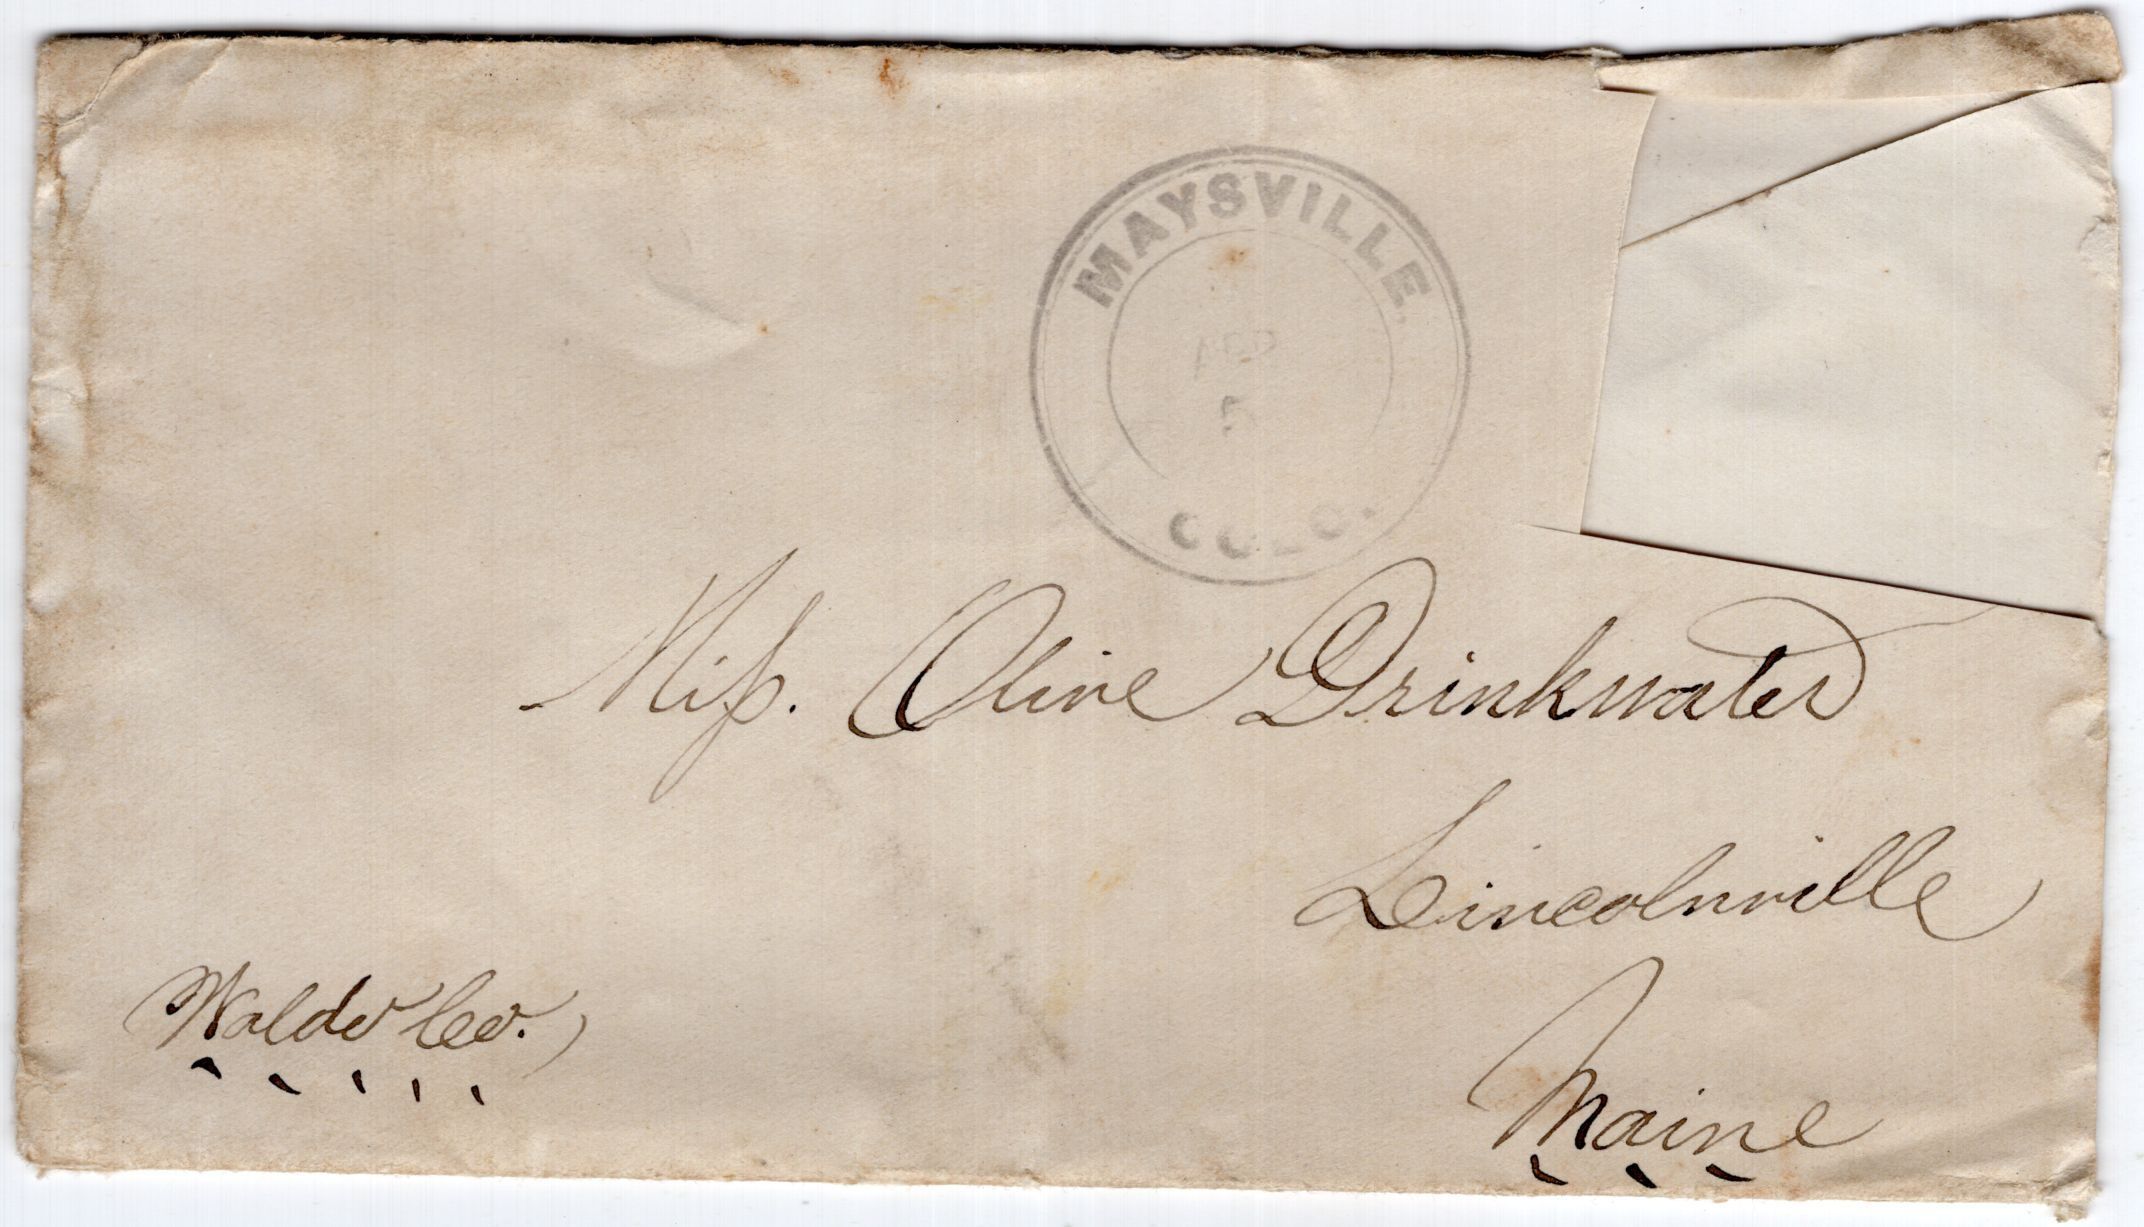 MAYSVILLE,
APR
5
COLO.
Miſs. Olive Drinkwater
Lincolnville
Waldo Co.
Maine